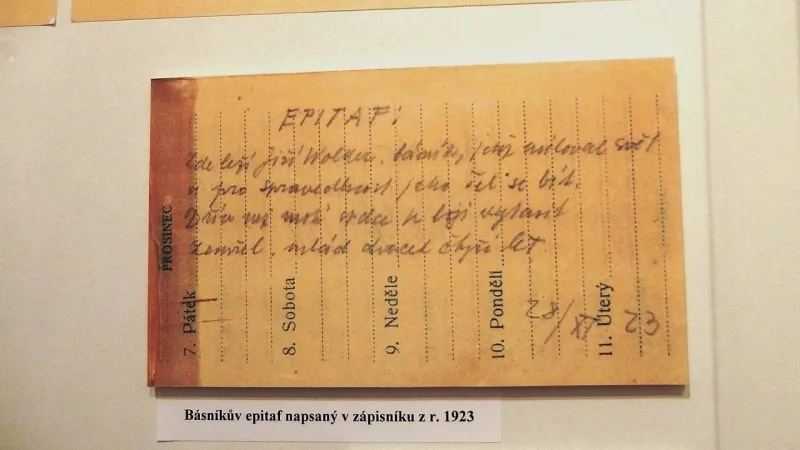 EPITAF:
Zde leží Jiří Wolker, básník, jenž miloval svět
a pro spravedlnost jeho šel se bít.
Dřív než moh' srdce k boji vytasit
zemřel, mlád dvacet čtyři let
28/XI 23
PROSINEC
7. Pátek
8. Sobota
9. Neděle
10. Pondělí
11. Úterý
Básníkův epitaf napsaný v zápisníku z r. 1923